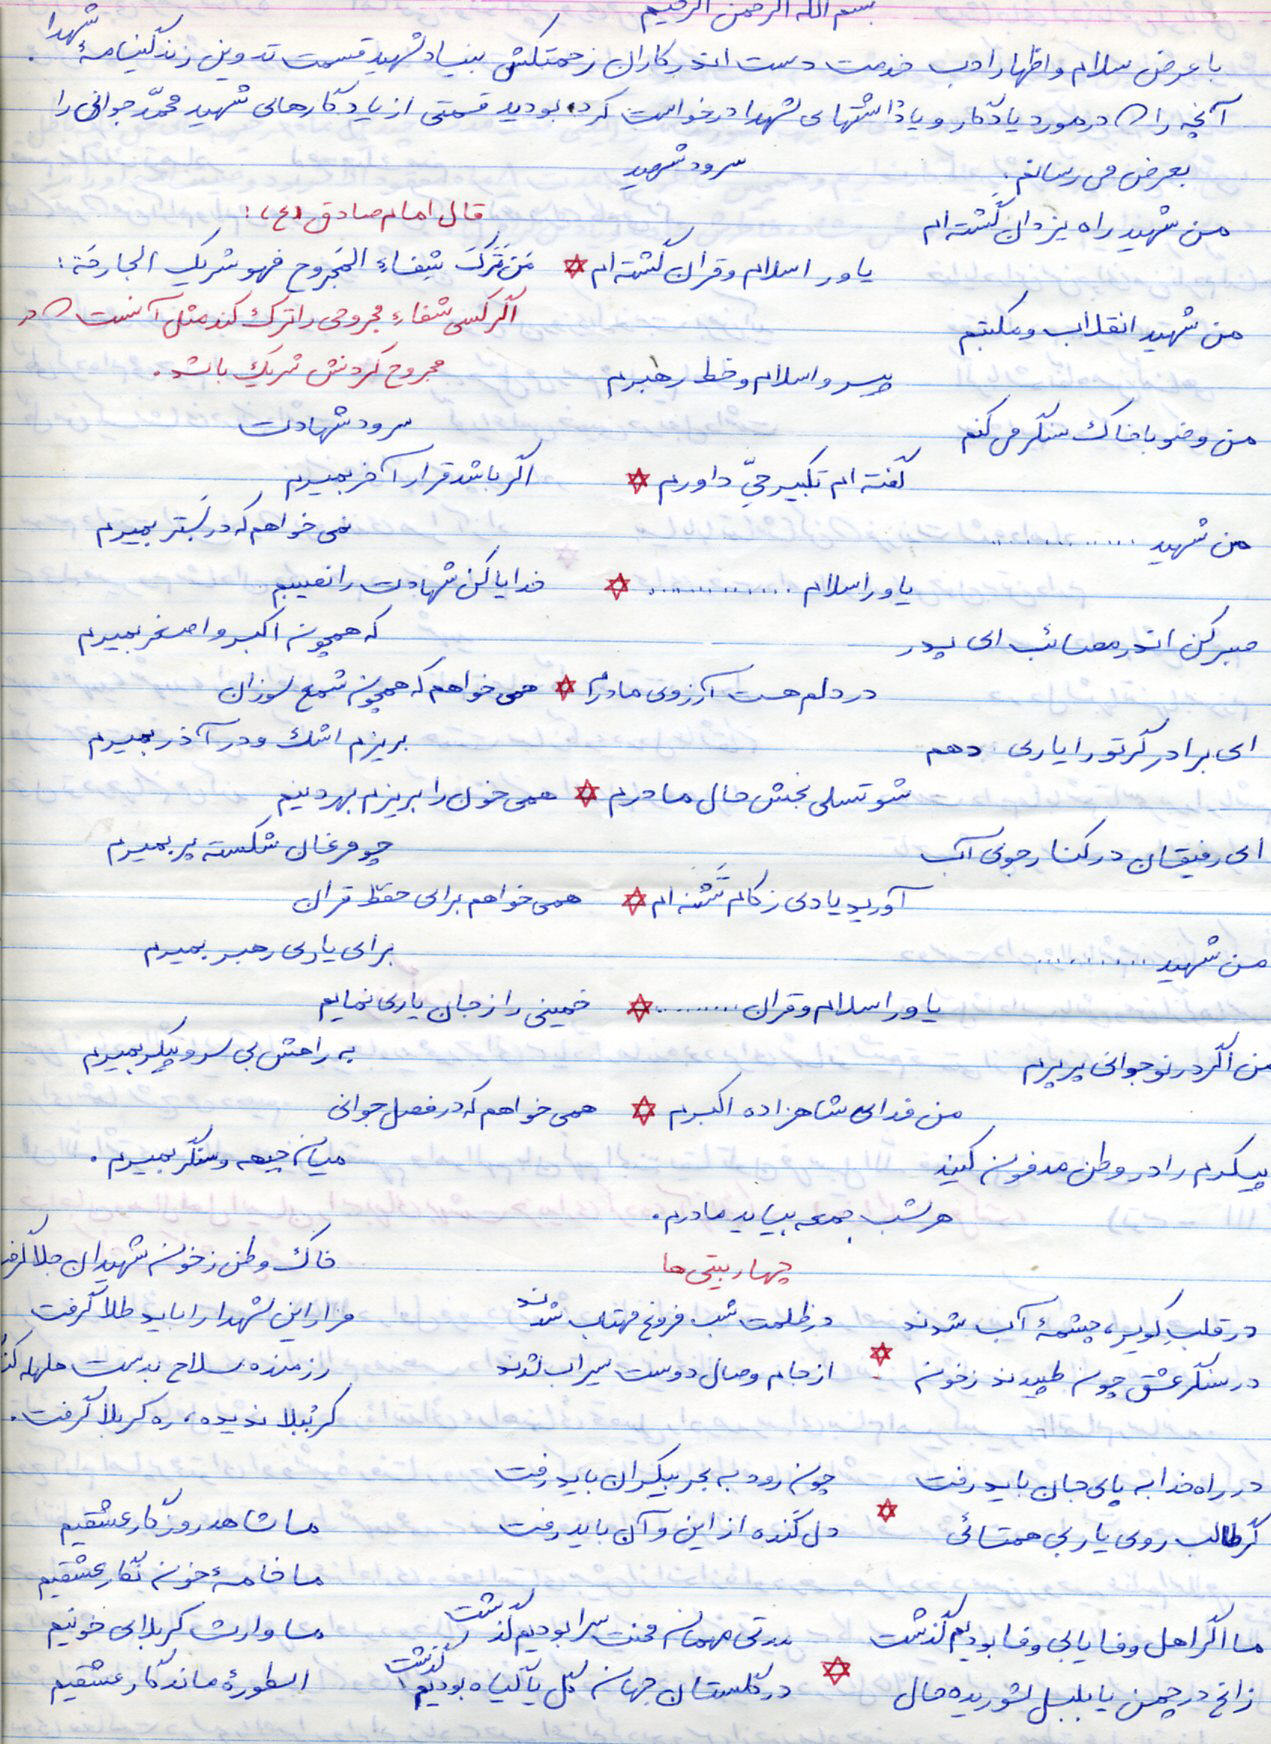 بسم الله الرحمن الرحیم
با عرض سلام و اظهار ادب خدمت دست اندرکاران زحمتکش بنیاد شهید قسمت تدوین زندگینامهٔ شهدا.
آنچه را که در مورد یادگار و یادداشتهای شهدا درخواست کرده بودید قسمتی از یادگارهای شهید محمّد جوانی را
بعرض می رسانم.
سرود شهید
من شهید راه یزدان گشته ام
یاور اسلام و قران گشته ام
من شهید انقلاب و مکتبم
پیرو اسلام و خط رهبرم
من وضو با خاک سنگر می کنم
گفته ام تکبیر حیّ داورم
من شهید ..............
یاور اسلام ..............
صبر کن اندر مصائب ای پدر
در دلم هست آرزوی مادرم
ای برادر گر تو را یاری دهم
شو تسلی بخش حال مادرم
ای رفیقان در کنار جوی آب
آورید یادی ز کام تشنه ام
من شهید ...........
یاور اسلام و قران .........
من اگر در نوجوانی پرپرم
من فدای شاهزاده اکبرم
پیکرم را در وطن مدفون کنید
هر شب جمعه بیاید مادرم.
قال امام صادق (ع):
مَن تَرَکَ شِفاءِ المَجروح فهو شریک الجارحَة:
اگر کسی شفاء مجروحی را ترک کند مثل آنست که در
مجروح کردنش شریک باشد.
سرود شهادت
اگر باشد قرار آخر بمیرم
نمی خواهم که در بستر بمیرم
خدایا کن شهادت را نصیبم
که همچون اکبر و اصغر بمیرم
همی خواهم که همچون شمع سوزان
بریزم اشک و در آذر بمیرم
همی خون را بریزم بهر دینم
چو مرغان شکسته پر بمیرم
همی خواهم برای حفظ قران
برای یاری رهبر بمیرم
خمینی را ز جان یاری نمایم
به راهش بی سر و پیکر بمیرم
همی خواهم که در فصل جوانی
میان جبهه و سنگر بمیرم.
چهار بیتی ها
در قلب کویر، چشمهٔ آب شدند
در ظلمت شب فروغ مهتاب شدند
در سنگر عشق چون طپیدند زخون
از جام وصال دوست سیراب شدند
خاک وطن ز خون شهیدان جلا گرفت
مزار این شهدا را باید طلا گرفت
رزمنده سلاح بدست
کربُبلا ندیده، ره کربلا گرفت.
در راه خدا به پای جان باید رفت
چون رود به بحر بیکران باید رفت
گر طالب روی یار بی همتائی
دل کنده از این و آن باید رفت
ما شاهد روزگار عشقیم
ما خامهٔ خون نگار عشقیم
ما وارث کربلای خونیم
اسطورهٔ ماندگار عشقیم
ما اگر اهل وفا یا بی وفا بودیم گذشت
مدتی مهمان محنت سرا بودیم گذشت
زاغ در چمن یا بلبل شوریده حال
در گلستان جهان گل یا گیاه بودیم گذشت